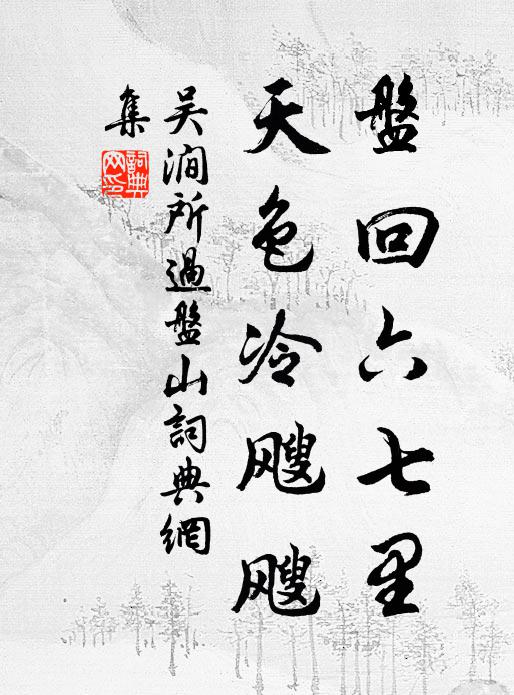 盤回六七里
天色冷飕飕
吴澗所過盤山詞典網
集
詞典网印